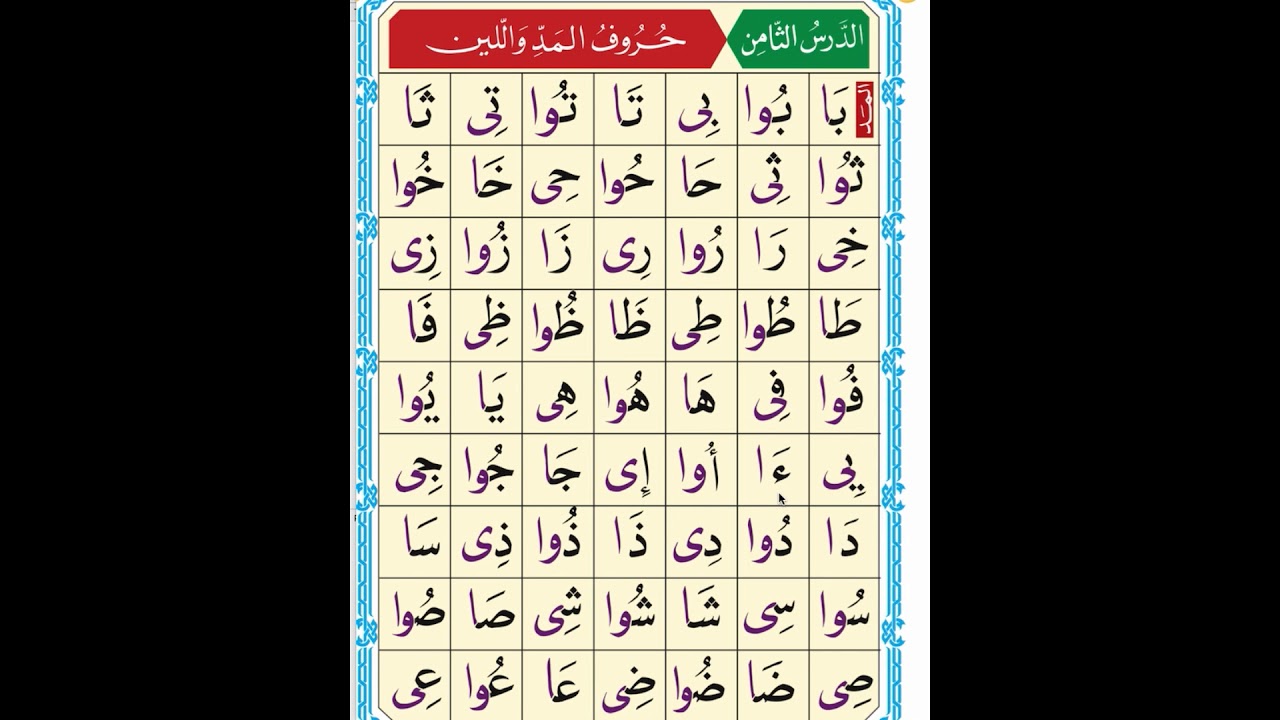 الدَّرسُ الثَّامِن حُرُوفُ المَدِّ وَالّلين
المَد
بَا بُوا بِى تَا تُوا تِى ثَا
ثُوا ثِى حَا حُوا حِى خَا خُوا
خِى رَا رُوا رِى زَا زُوا زِى
طَا طُوا طِى ظَا ظُوا ظِى فَا
فُوا فِى هَا هُوا هِى يَا يُوا
يِى ءَا أُوا إِى جَا جُوا جِى
دَا دُوا دِى ذَا ذُوا ذِى سَا
سُوا سِى شَا شُوا شِى صَا صُوا
صِى ضَا ضُوا ضِى عَا عُوا عِى